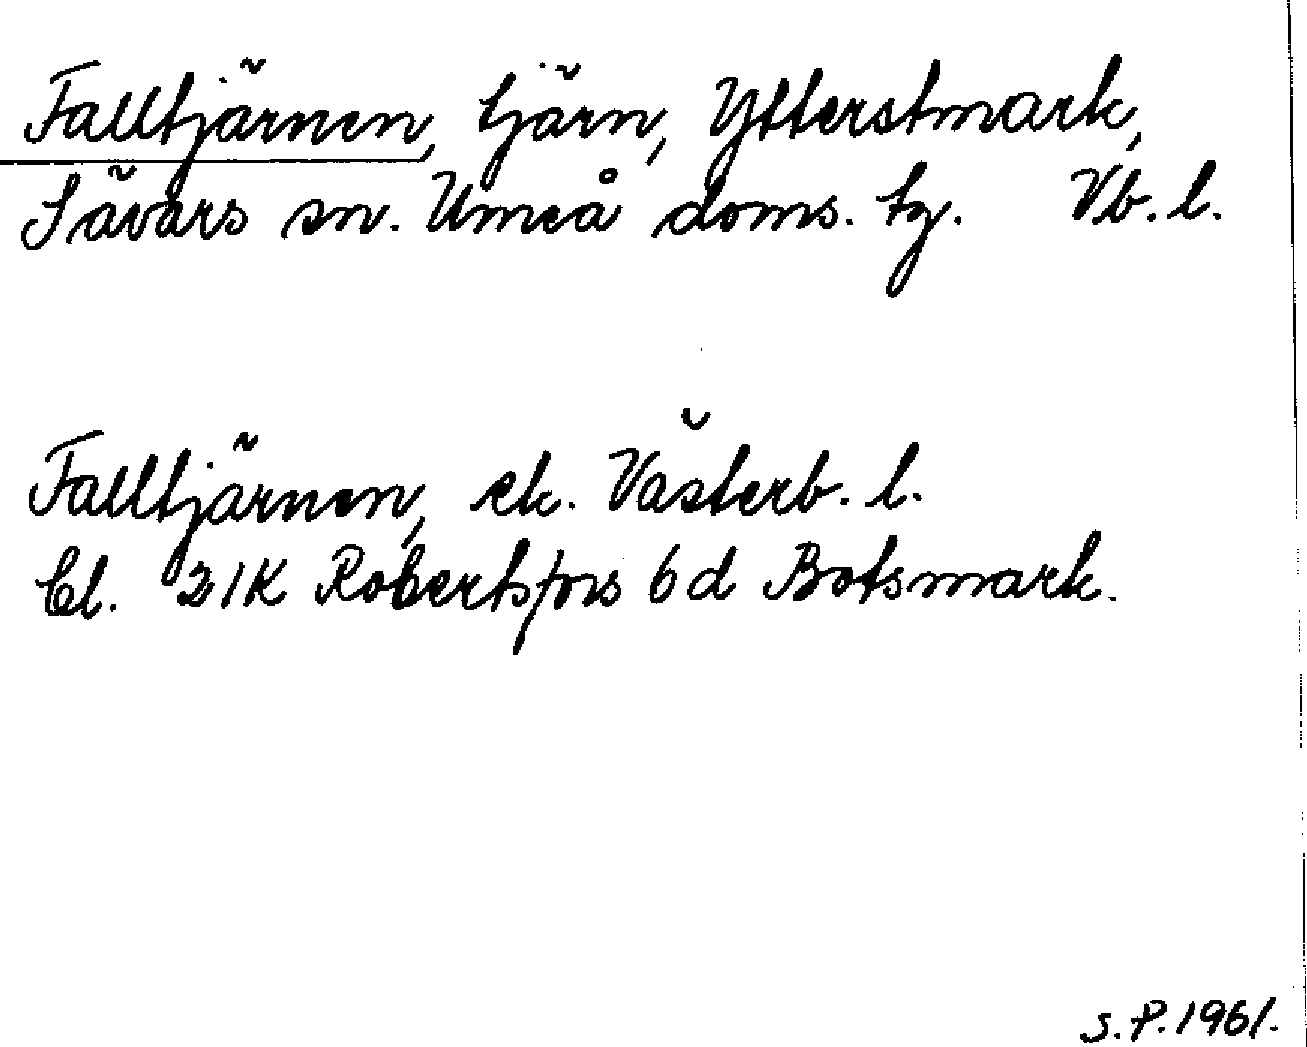 Falltjärnen, tjärn, Ytterstmark,
Sävars sn. Umeå doms. tg. Vb. l.
Falltjärnen, ek. Västerb. l.
Bl. 21K Robertsfors 6d Botsmark.
S.P. 1961.